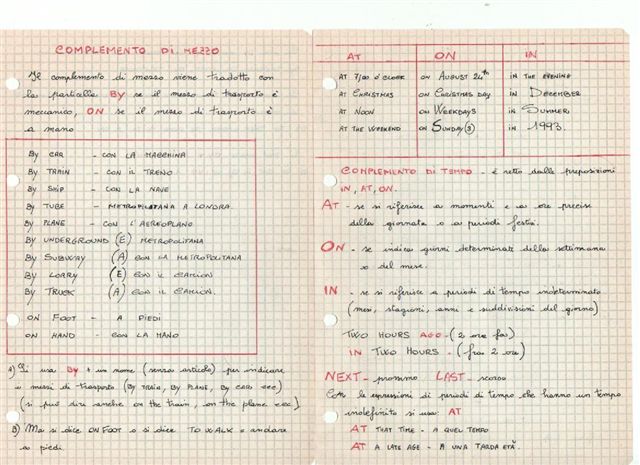 COMPLEMENTO DI MEZZO
Il complemento di mezzo viene tradotto con
la particella BY se il mezzo di trasporto è
meccanico, ON se il mezzo di trasporto è
a mano
BY CAR - CON LA MACCHINA
BY TRAIN - CON IL TRENO
BY SHIP - CON LA NAVE
BY TUBE - METROPOLITANA A LONDRA.
BY PLANE - CON L'AEREOPLANO
BY UNDERGROUND (E) METROPOLITANA
BY SUBWAY (A) CON LA METROPOLITANA
BY LORRY (E) CON IL CAMION
BY TRUCK (A) CON IL CAMION.
ON FOOT - A PIEDI
ON HAND - CON LA MANO
A) Si usa BY + un nome (senza articolo) per indicare
i mezzi di trasporto (BY TRAIN, BY PLANE, BY CAR ecc)
(si può dire anche on the train, on the plane ecc)
B) Ma si dice ON FOOT o si dice TO WALK = andare
a piedi.
AT ON IN
AT 7/00 O'CLOCK ON AUGUST 24th IN THE EVENING
AT CHRISTMAS ON CHRISTMAS DAY IN DECEMBER
AT NOON ON WEEKDAYS IN SUMMER
AT THE WEEKEND ON SUNDAY(S) IN 1993.
COMPLEMENTO DI TEMPO - è retto dalle preposizioni
IN, AT, ON.
AT - se si riferisce a momenti e a ore precise
della giornata o a periodi festivi.
ON - se indica giorni determinati della settimana
o del mese.
IN - se si riferisce a periodi di tempo indeterminato
(mesi, stagioni, anni e suddivisioni del giorno)
TWO HOURS AGO - (2 ore fa)
IN TWO HOURS - (fra 2 ore)
NEXT - prossimo LAST - scorso
Con le espressioni di periodi di tempo che hanno un tempo
indefinito si usa: AT
AT THAT TIME - A QUEL TEMPO
AT A LATE AGE - A UNA TARDA ETÀ.